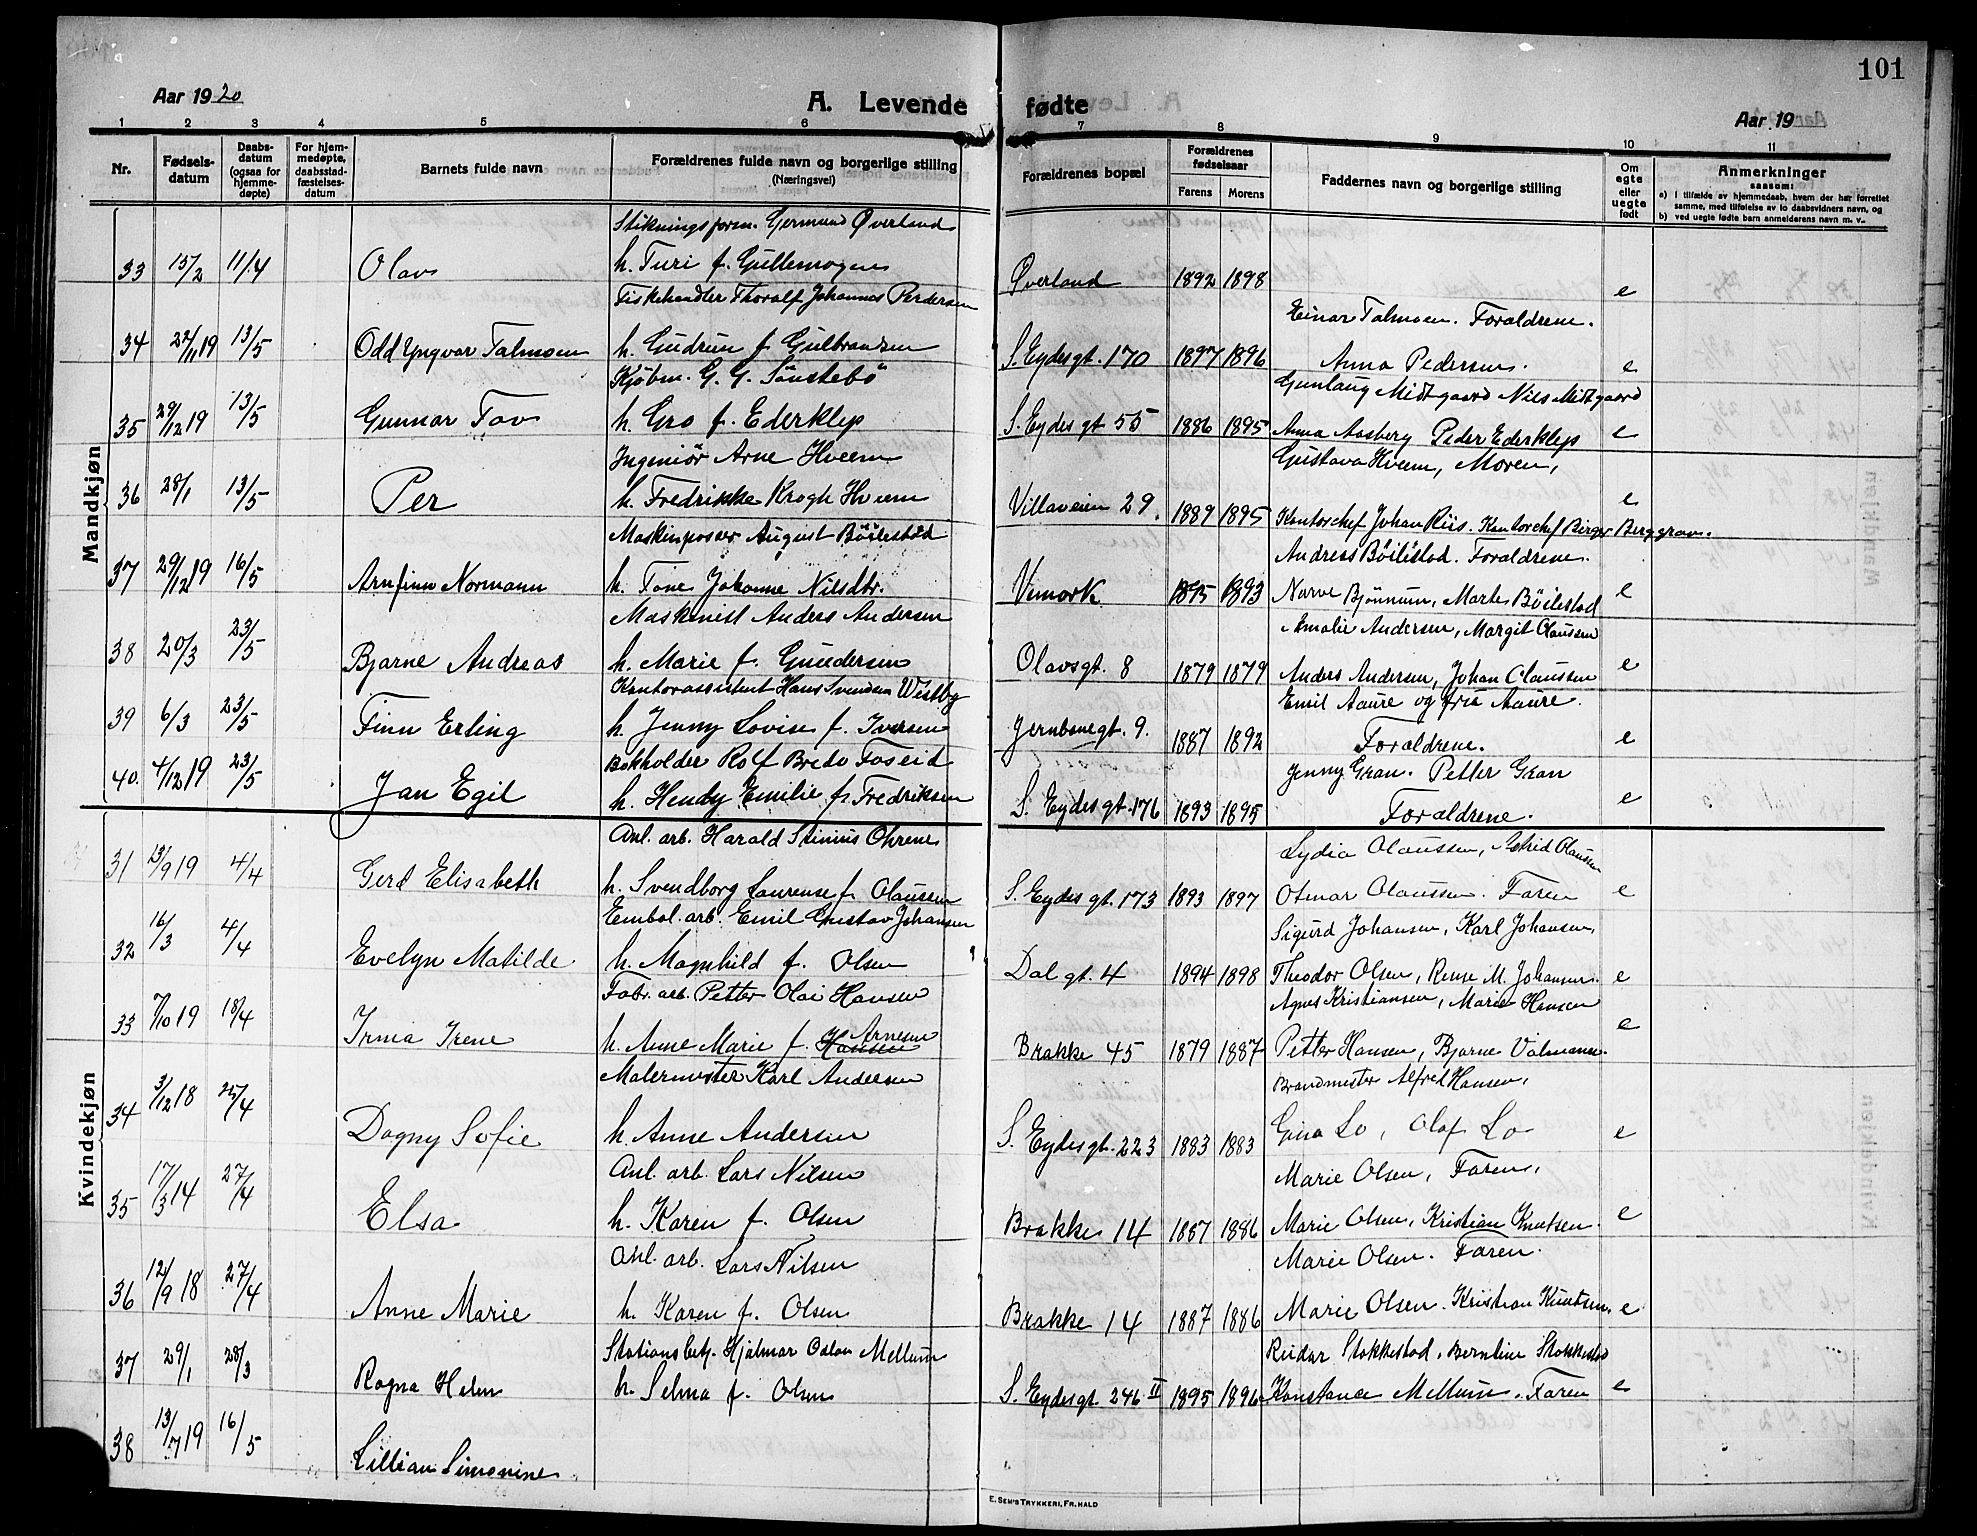 101
Aar 1920
A. Levende fødte
Aar 19
1 2 3 4 5 6 7 8 9 10 11
Nr.
Fødsels-
datum
Daabs-
datum
(ogsaa for
hjemme-
døpte)
For hjem-
medøpte,
daabsstad-
fæstelses-
datum
Barnets fulde navn
Forældrenes fulde navn og borgerlige stilling
(Næringsvei)
Forældrenes bopæl
Forældrenes
fødselsaar
Farens Morens
Faddernes navn og borgerlige stilling
Om
egte
eller
uegte
født
Anmerkninger
saasom:
a) i tilfælde av hjemmedaab, hvem der har forrettet
samme, med tilføielse av to daabsvidners navn, og
b) ved uegte fødte barn anmelderens navn m. v.
Mandkjøn
Stikningsform. Germund Øverland
33 15/2 11/4 Olav h. Turi f. Øverland 1892 1898 e
Fiskehandler Thoralf Johannes Pedersen Einar Talmoen. Forældrene.
34 22/11 19 13/5 Odd Yngvar Talmoen h. Gudrun f. Gulbrandsen S. Eydesgt. 170 1897 1896 Anna Pedersen. e
Kjøbm. G. G. Sönstebö Gunlaug Midtgaard Nils Midtgaard
35 29/12 19 13/5 Gunnar Tov h. Gro f. Ederklep S. Eydesgt 55 1886 1895 Anna Aasberg Peder Ederklep e
Ingeniör Arne Hveem Gustava Hveem, Moren,
36 28/1 13/5 Per h. Fredrikke Krogh Hveem Villaveien 29. 1889 1895 Kontorchef Johan Riis. Kontorchef Birger Berggrav. e
Maskinpasser August Böilestad Andreas Böilestad. Forældrene.
37 29/12 19 16/5 Arnfinn Normann h. Tone Johanne Nilsdtr. Vemork 1895 1893 Narve Bjönnum, Marte Böilestad e
Maskinist Anders Andersen Amalie Andersen, Margit Claussen
38 20/3 23/5 Bjarne Andreas h. Marie f. Gundersen Olavsgt. 8 1879 1879 Anders Andersen, Johan Claussen e
Kontorassistent Hans Svendsen Westby Emil Aaure og fru Aaure.
39 6/3 23/5 Finn Erling h. Jenny Lovise f. Iversen Jernbanegt. 9. 1887 1892 Forældrene. e
Bokholder Rolf Bredo Foseid Jenny Gran. Petter Gran
40. 4/12 19 23/5 Jan Egil h. Emilie f. Fredriksen S. Eydesgt. 176 1893 1895 Forældrene. e
Kvindekjøn
Anl. arb. Harald Stinius Ohrene Lydia Olaussen, Astrid Olaussen
31 23/9 19 4/4 Gerd Elisabeth h. Svendborg Laurense f. Olaussen S. Eydesgt. 173 1893 1897 Otmar Olaussen. Faren e
Embal. arb. Emil Gustav Johansen Sigurd Johansen, Karl Johansen,
32 16/3 4/4 Evelyn Matilde h. Magnhild f. Olsen Dal gt. 4 1894 1898 Theodor Olsen, M. Johansen. e
Fabr. arb. Petter Olai Hansen Agnes Kristiansen, Marie Hansen
33 7/10 19 18/4 Irma Irene h. Anne Marie f. Hansen Arnesen Brakke 45 1879 1887 Petter Hansen, Bjarne e
Malermester Karl Andersen Brandmester Alfred Hansen,
34 3/12 18 25/4 Dagny Sofie h. Anne Andersen S. Eydesgt. 223 1883 1883 Gina Lo, Olaf Lo e
Anl. arb. Lars Nilsen Marie Olsen, Faren,
35 17/3 14 27/4 Elsa h. Karen f. Olsen Brakke 14 1887 1886 Marie Olsen, Kristian Knutsen. e
Anl. arb. Lars Nilsen Marie Olsen. Faren.
36 12/9 18 27/4 Anne Marie h. Karen f. Olsen Brakke 14 1887 1886 Marie Olsen. Kristian Knutsen. e
Stationsbetj. Hjalmar Oskar Mellum Reidar Stokkestad, Berntine Stokkestad
37 29/1 28/3 Ragna Helen h. Selma f. Olsen S. Eydesgt. 246 II 1895 1896 Konstance Mellum. Faren e
38 13/7 19 16/5 Lillian Simonine
E. SEM'S TRYKKERI, FR.HALD